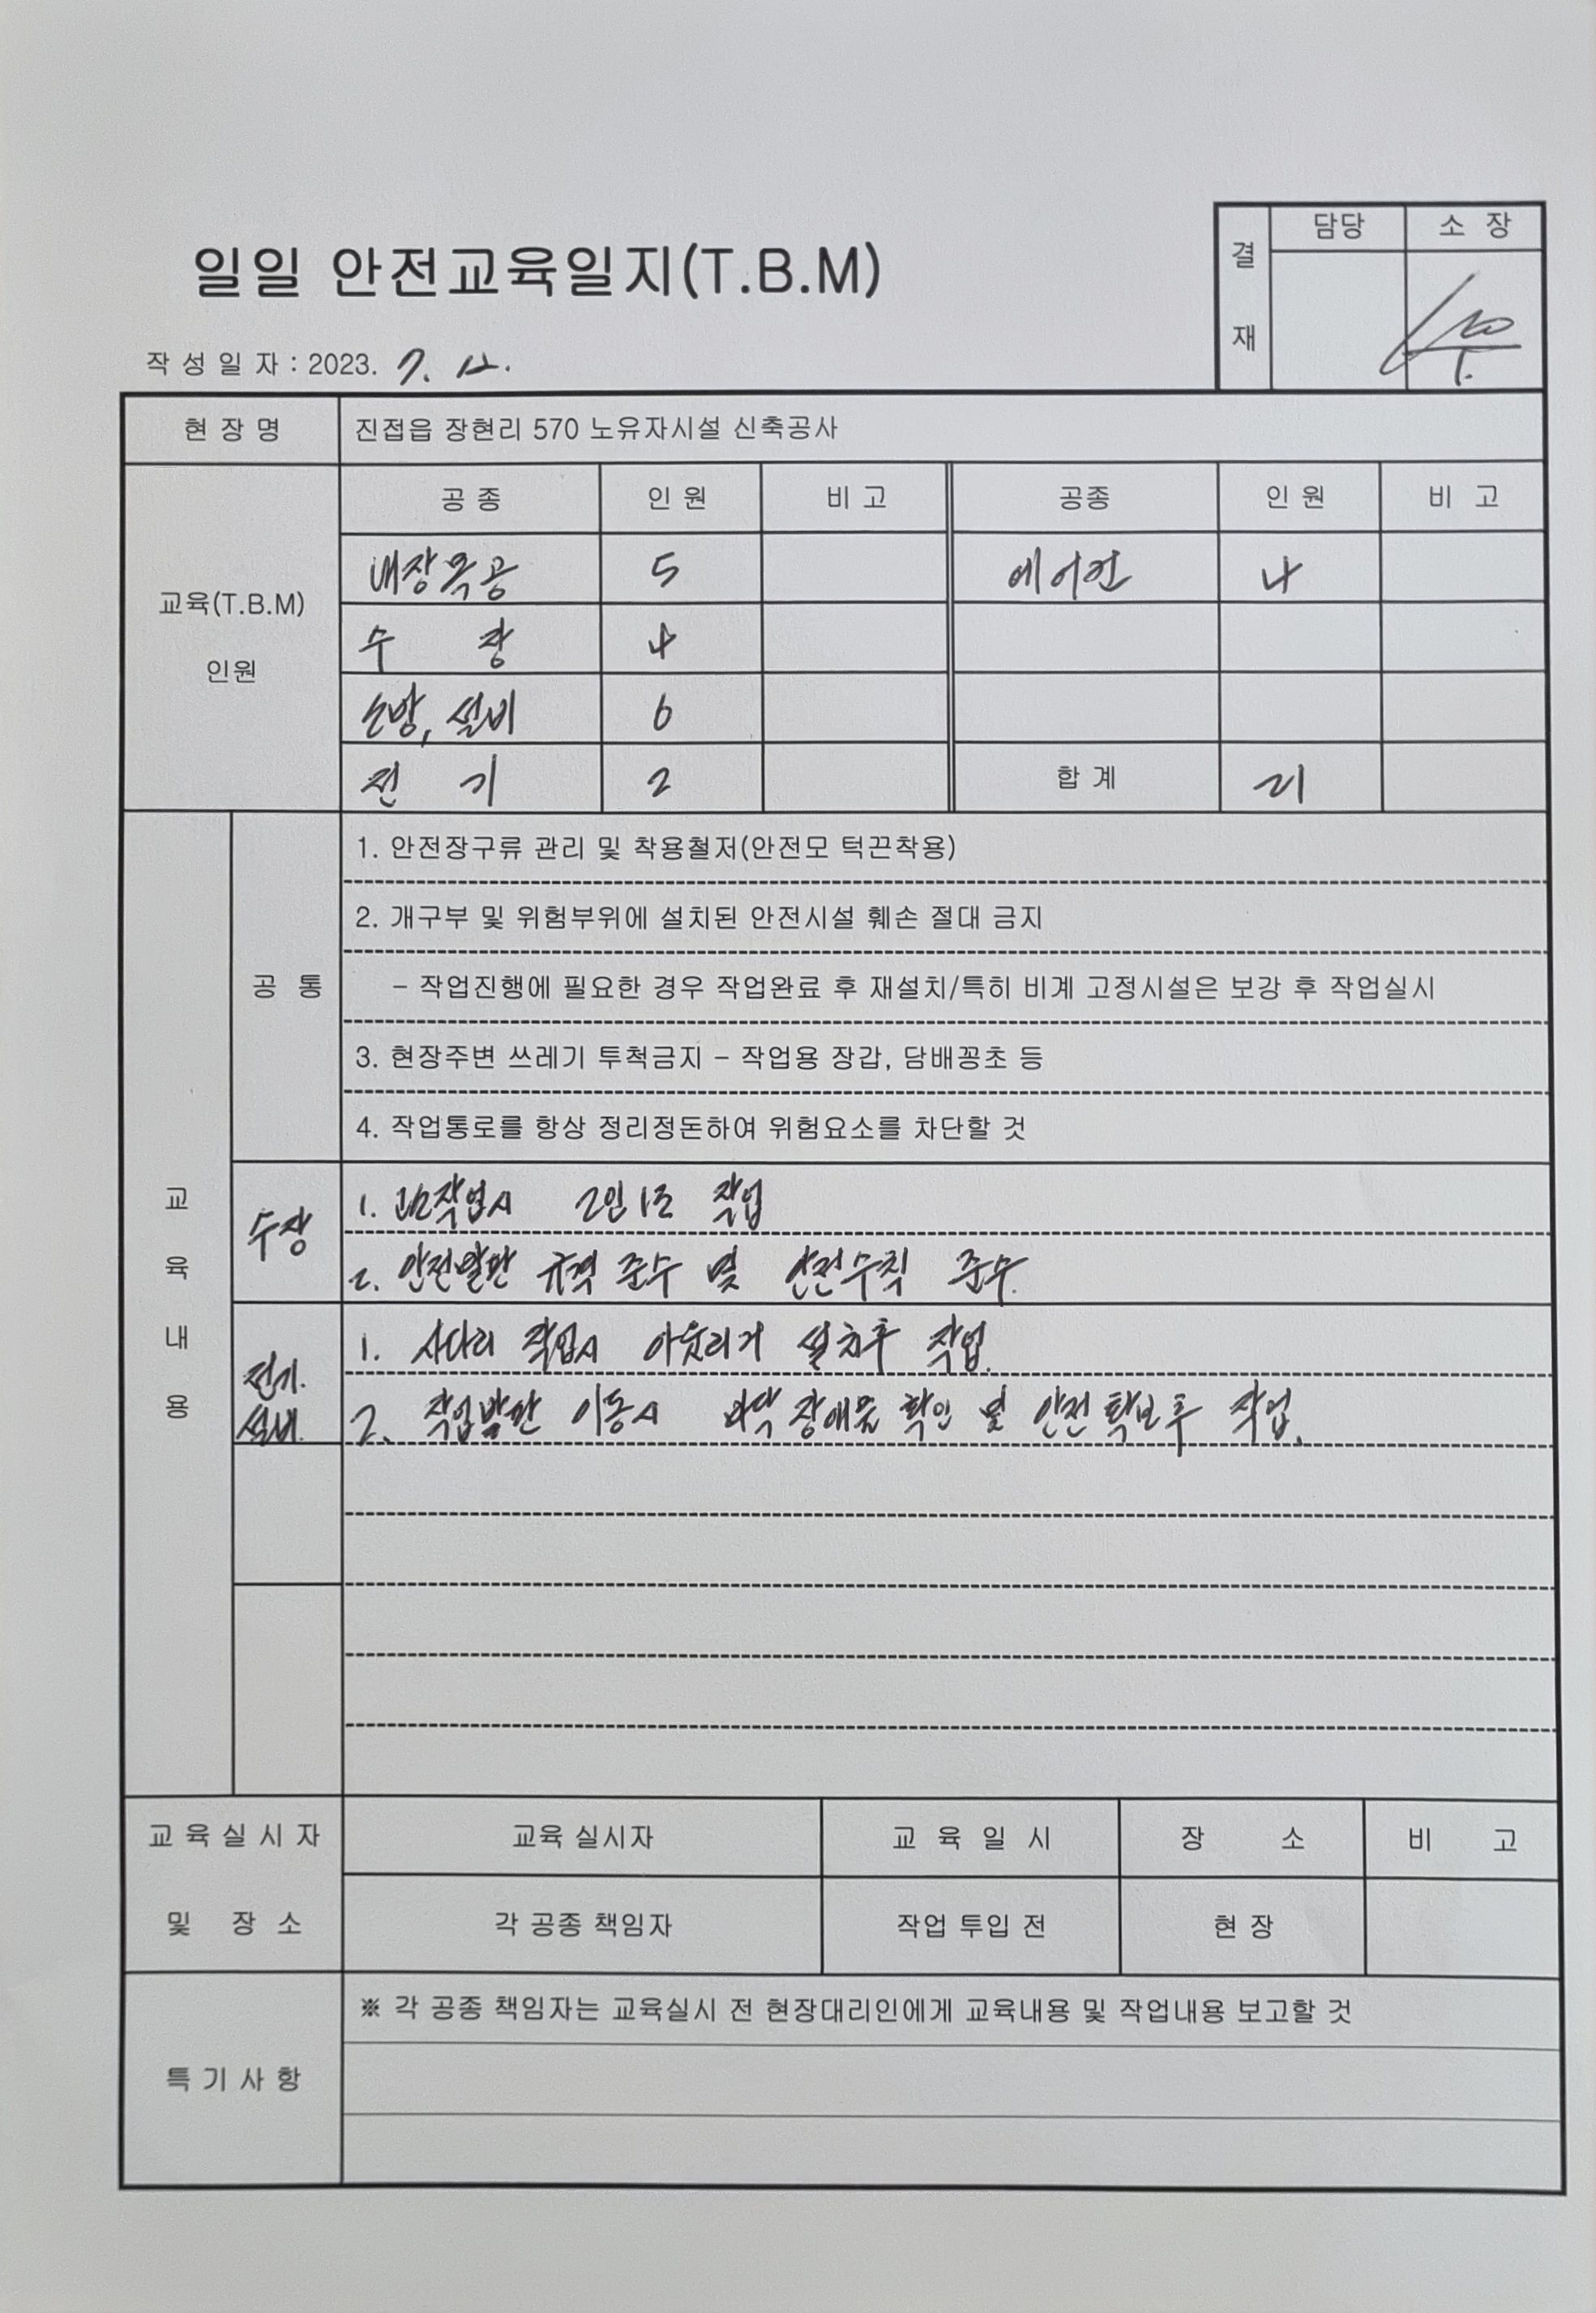 결 재
담당
소 장
일일 안전교육일지(T.B.M)
작 성 일 자 : 2023. 7. 12.
현 장 명
진접읍 장현리 570 노유자시설 신축공사
교육(T.B.M) 인원
공 종 인 원 비 고 공종 인 원 비 고
내장목공 5 에어컨 4
수 장 4
소방, 설비 6
전 기 2 합 계 21
교 육 내 용
공 통
1. 안전장구류 관리 및 착용철저(안전모 턱끈착용)
2. 개구부 및 위험부위에 설치된 안전시설 훼손 절대 금지
- 작업진행에 필요한 경우 작업완료 후 재설치/특히 비계 고정시설은 보강 후 작업실시
3. 현장주변 쓰레기 투척금지 - 작업용 장갑, 담배꽁초 등
4. 작업통로를 항상 정리정돈하여 위험요소를 차단할 것
수장
1. 고소작업시 2인 1조 작업
2. 안전발판 규격 준수 및 안전수칙 준수.
전기.
설비.
1. 사다리 작업시 아웃리거 설치후 작업.
2. 작업발판 이동시 바닥 장애물 확인 및 안전 확보후 작업.
교 육 실 시 자
및 장 소
교육 실시자 교 육 일 시 장 소 비 고
각 공종 책임자 작업 투입 전 현 장
특 기 사 항
※ 각 공종 책임자는 교육실시 전 현장대리인에게 교육내용 및 작업내용 보고할 것